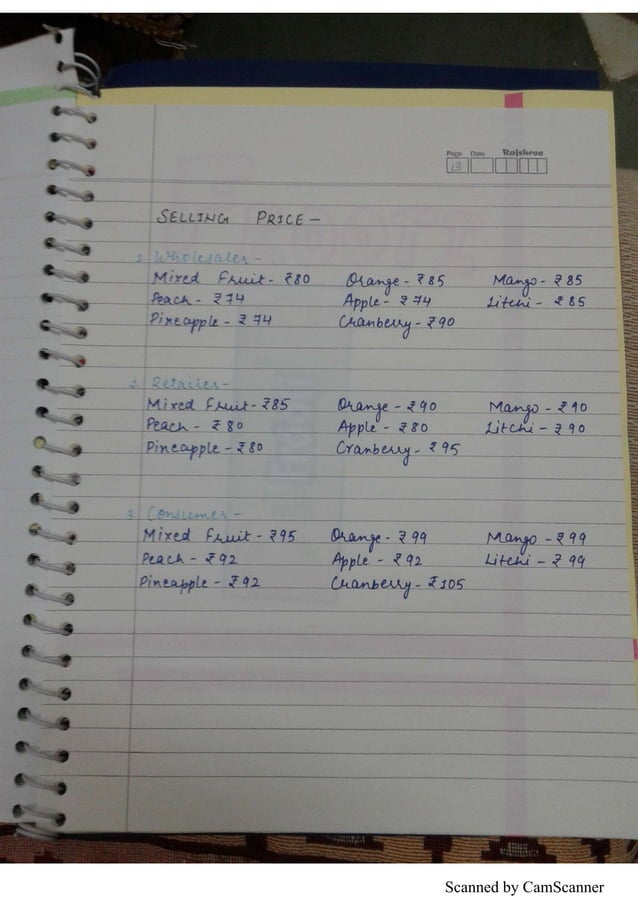 Page Date Rajshree
13
SELLING PRICE -
1. Wholesaler -
Mixed Fruit - ₹80 Orange - ₹85 Mango - ₹85
Peach - ₹74 Apple - ₹74 Litchi - ₹85
Pineapple - ₹74 Cranberry - ₹90
2. Retailer -
Mixed Fruit - ₹85 Orange - ₹90 Mango - ₹90
Peach - ₹80 Apple - ₹80 Litchi - ₹90
Pineapple - ₹80 Cranberry - ₹95
3. Consumer -
Mixed Fruit - ₹95 Orange - ₹99 Mango - ₹99
Peach - ₹92 Apple - ₹92 Litchi - ₹99
Pineapple - ₹92 Cranberry - ₹105
Scanned by CamScanner